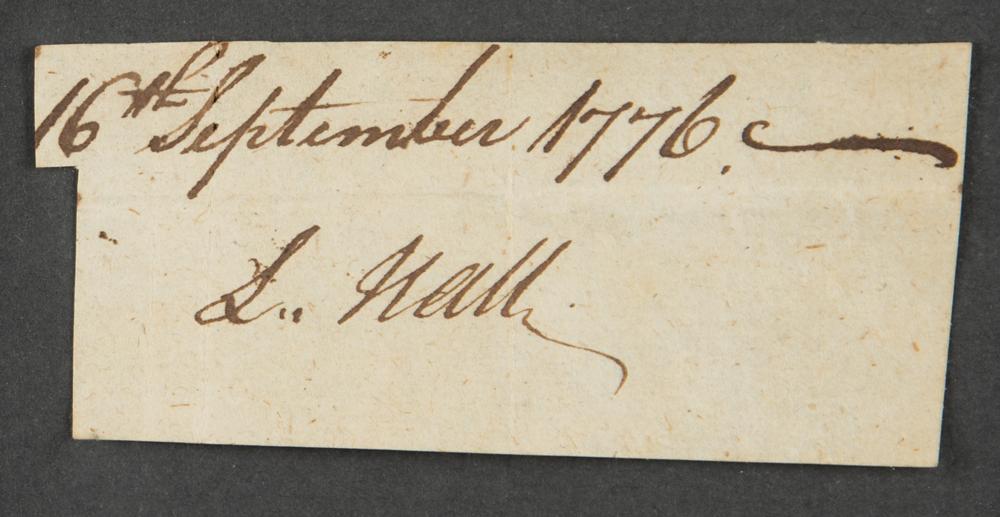 16th September 1776.
L. Hall